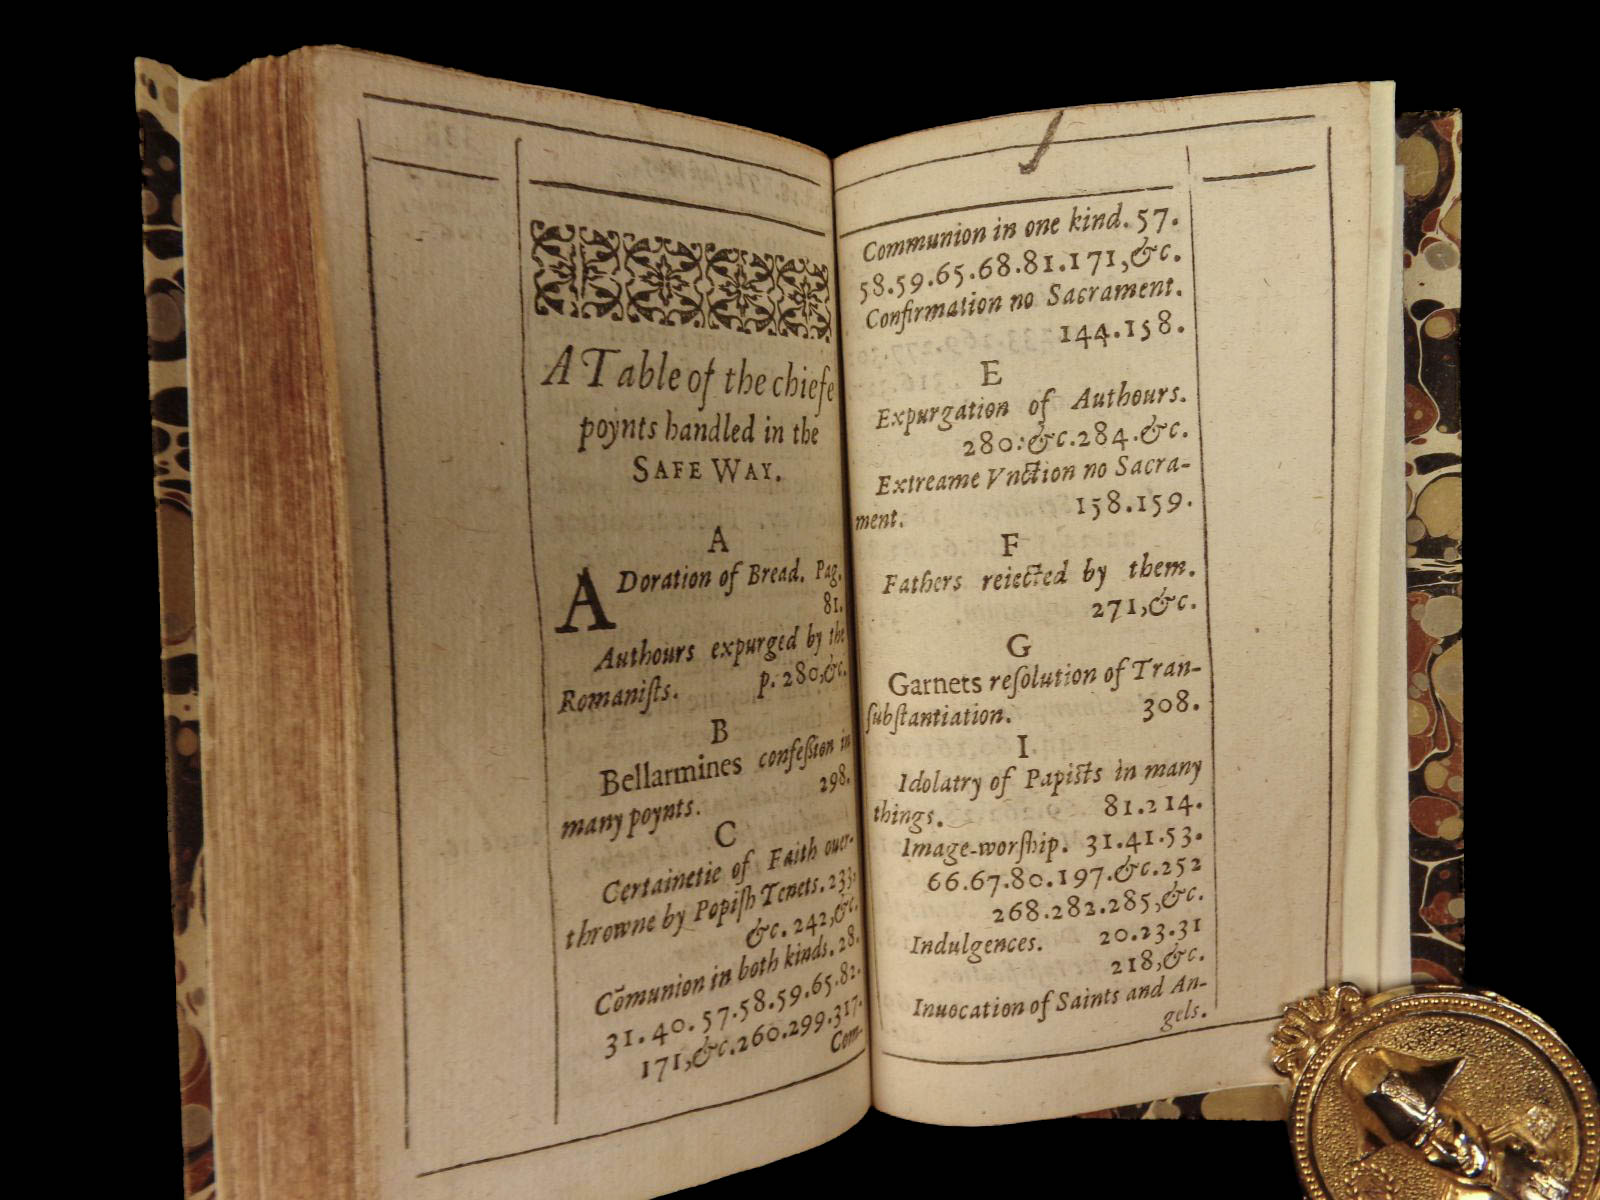 A Table of the chiefe
poynts handled in the
SAFE WAY.
A
ADoration of Bread. Pag.
81.
Authours expurged by the
Romaniſts. p. 280,&c.
B
Bellarmines confeſſion in
many poynts. 298.
C
Certainetie of Faith ouer-
throwne by Popiſh Tenets. 233.
&c. 242,&c.
Cõmunion in both kinds. 28.
31.40.57.58.59.65.82.
171,&c.260.299.317.
Com-
Communion in one kind. 57.
58.59.65.68.81.171,&c.
Confirmation no Sacrament.
144.158.
E
Expurgation of Authours.
280.&c.284.&c.
Extreame Vnction no Sacra-
ment. 158.159.
F
Fathers reiected by them.
271,&c.
G
Garnets reſolution of Tran-
ſubſtantiation. 308.
I
Idolatry of Papiſts in many
things. 81.214.
Image-worſhip. 31.41.53.
66.67.80.197.&c.252
268.282.285,&c.
Indulgences. 20.23.31
218,&c.
Inuocation of Saints and An-
gels.